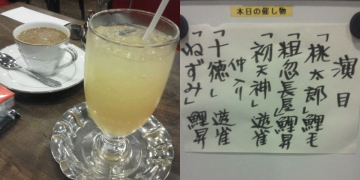 本日の催し物
演目
「桃太郎」鯉毛
「粗忽長屋」鯉昇
「初天神」遊雀
仲入り
「十徳」遊雀
「ねずみ」鯉昇